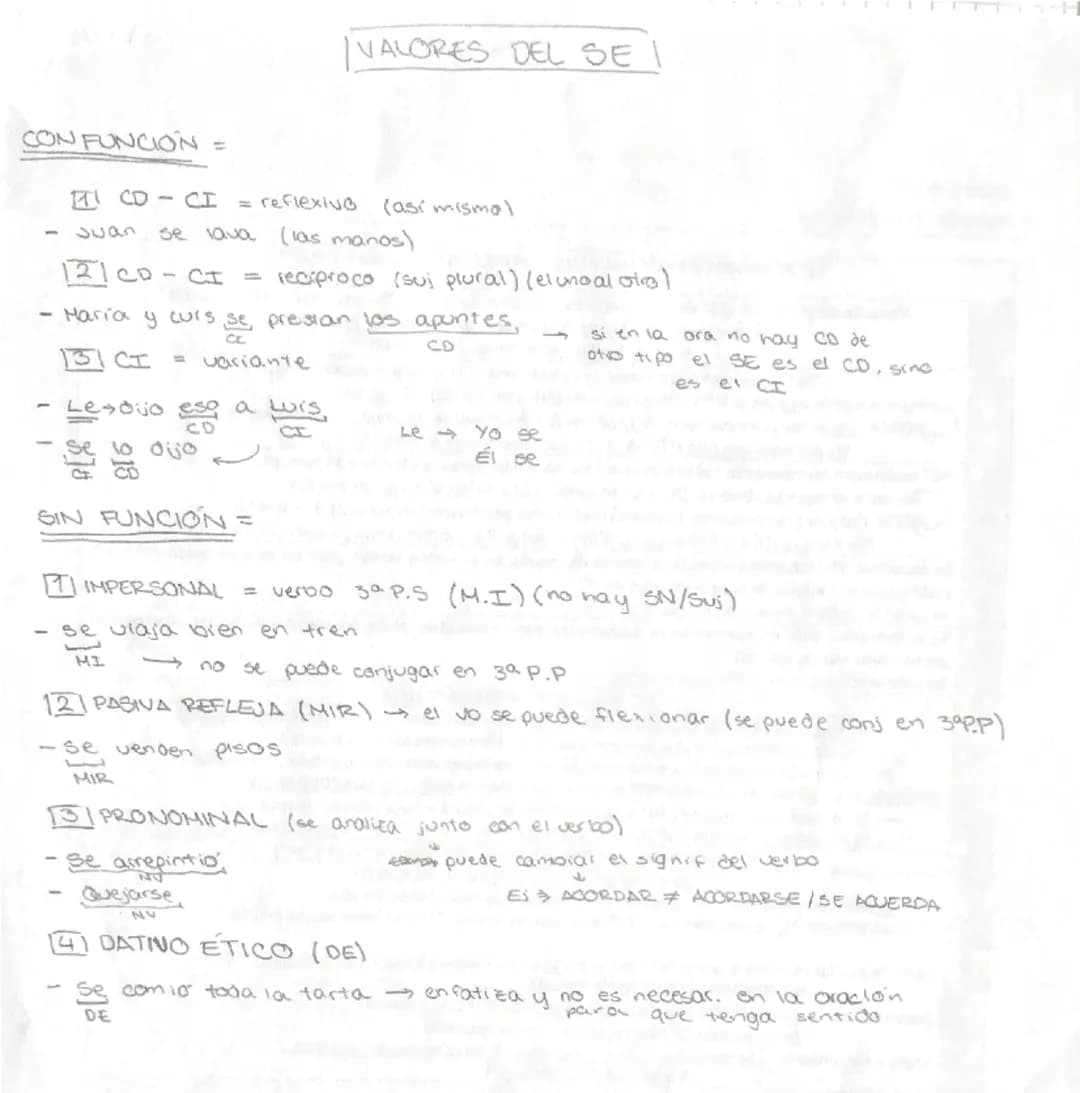 VALORES DEL SE
CON FUNCIÓN =
1 CD - CI = reflexivo (así mismo)
- Juan se lava (las manos)
2 CD - CI = recíproco (suj plural) (el uno al otro)
- María y Luis se prestan los apuntes → si en la ora no hay CD de
CI CD otro tipo el SE es el CD, sino
3 CI = variante es el CI
- Le → Dijo eso a Luis
CD CI Le → Yo se
- Se lo dijo Él se
CI CD
SIN FUNCIÓN =
1 IMPERSONAL = verbo 3ª P.S (M.I) (no hay SN/Suj)
- Se viaja bien en tren
MI → no se puede conjugar en 3ª P.P
2 PASIVA REFLEJA (MIR) → el vo se puede flexionar (se puede conj en 3ªP.P)
- Se venden pisos
MIR
3 PRONOMINAL (se analiza junto con el verbo)
- Se arrepintió puede cambiar el signif del verbo
NV
- Quejarse Ej → ACORDAR ≠ ACORDARSE / SE ACUERDA
NV
4 DATIVO ÉTICO (DE)
- Se comió toda la tarta → enfatiza y no es necesar. en la oración
DE para que tenga sentido